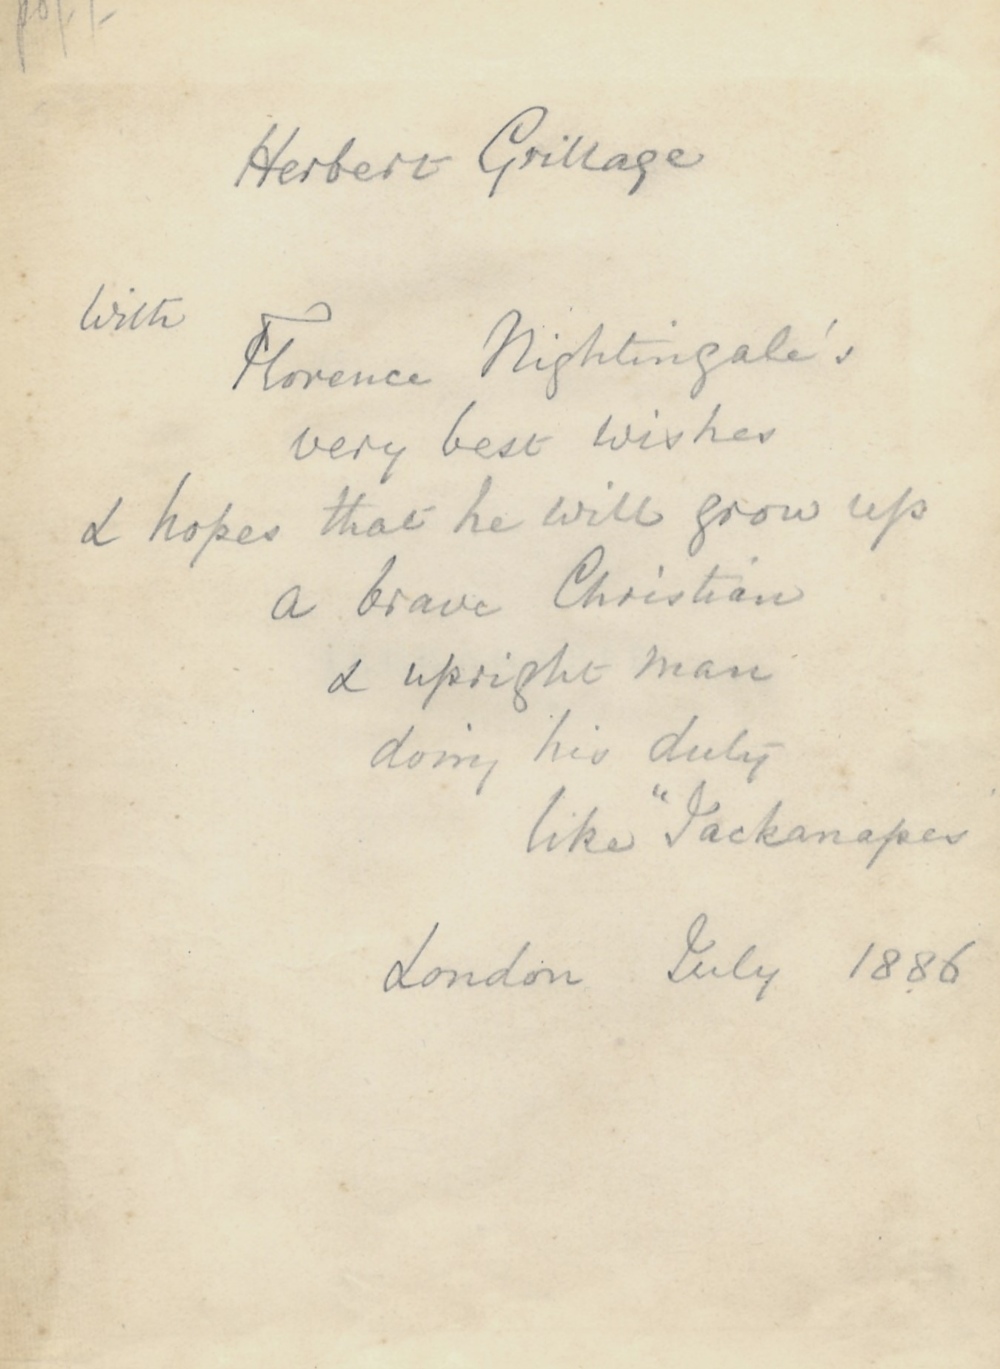 Herbert Grillage
with
Florence Nightingale's
very best wishes
& hopes that he will grow up
a brave Christian
& upright man
doing his duty
like "Jackanapes
London July 1886